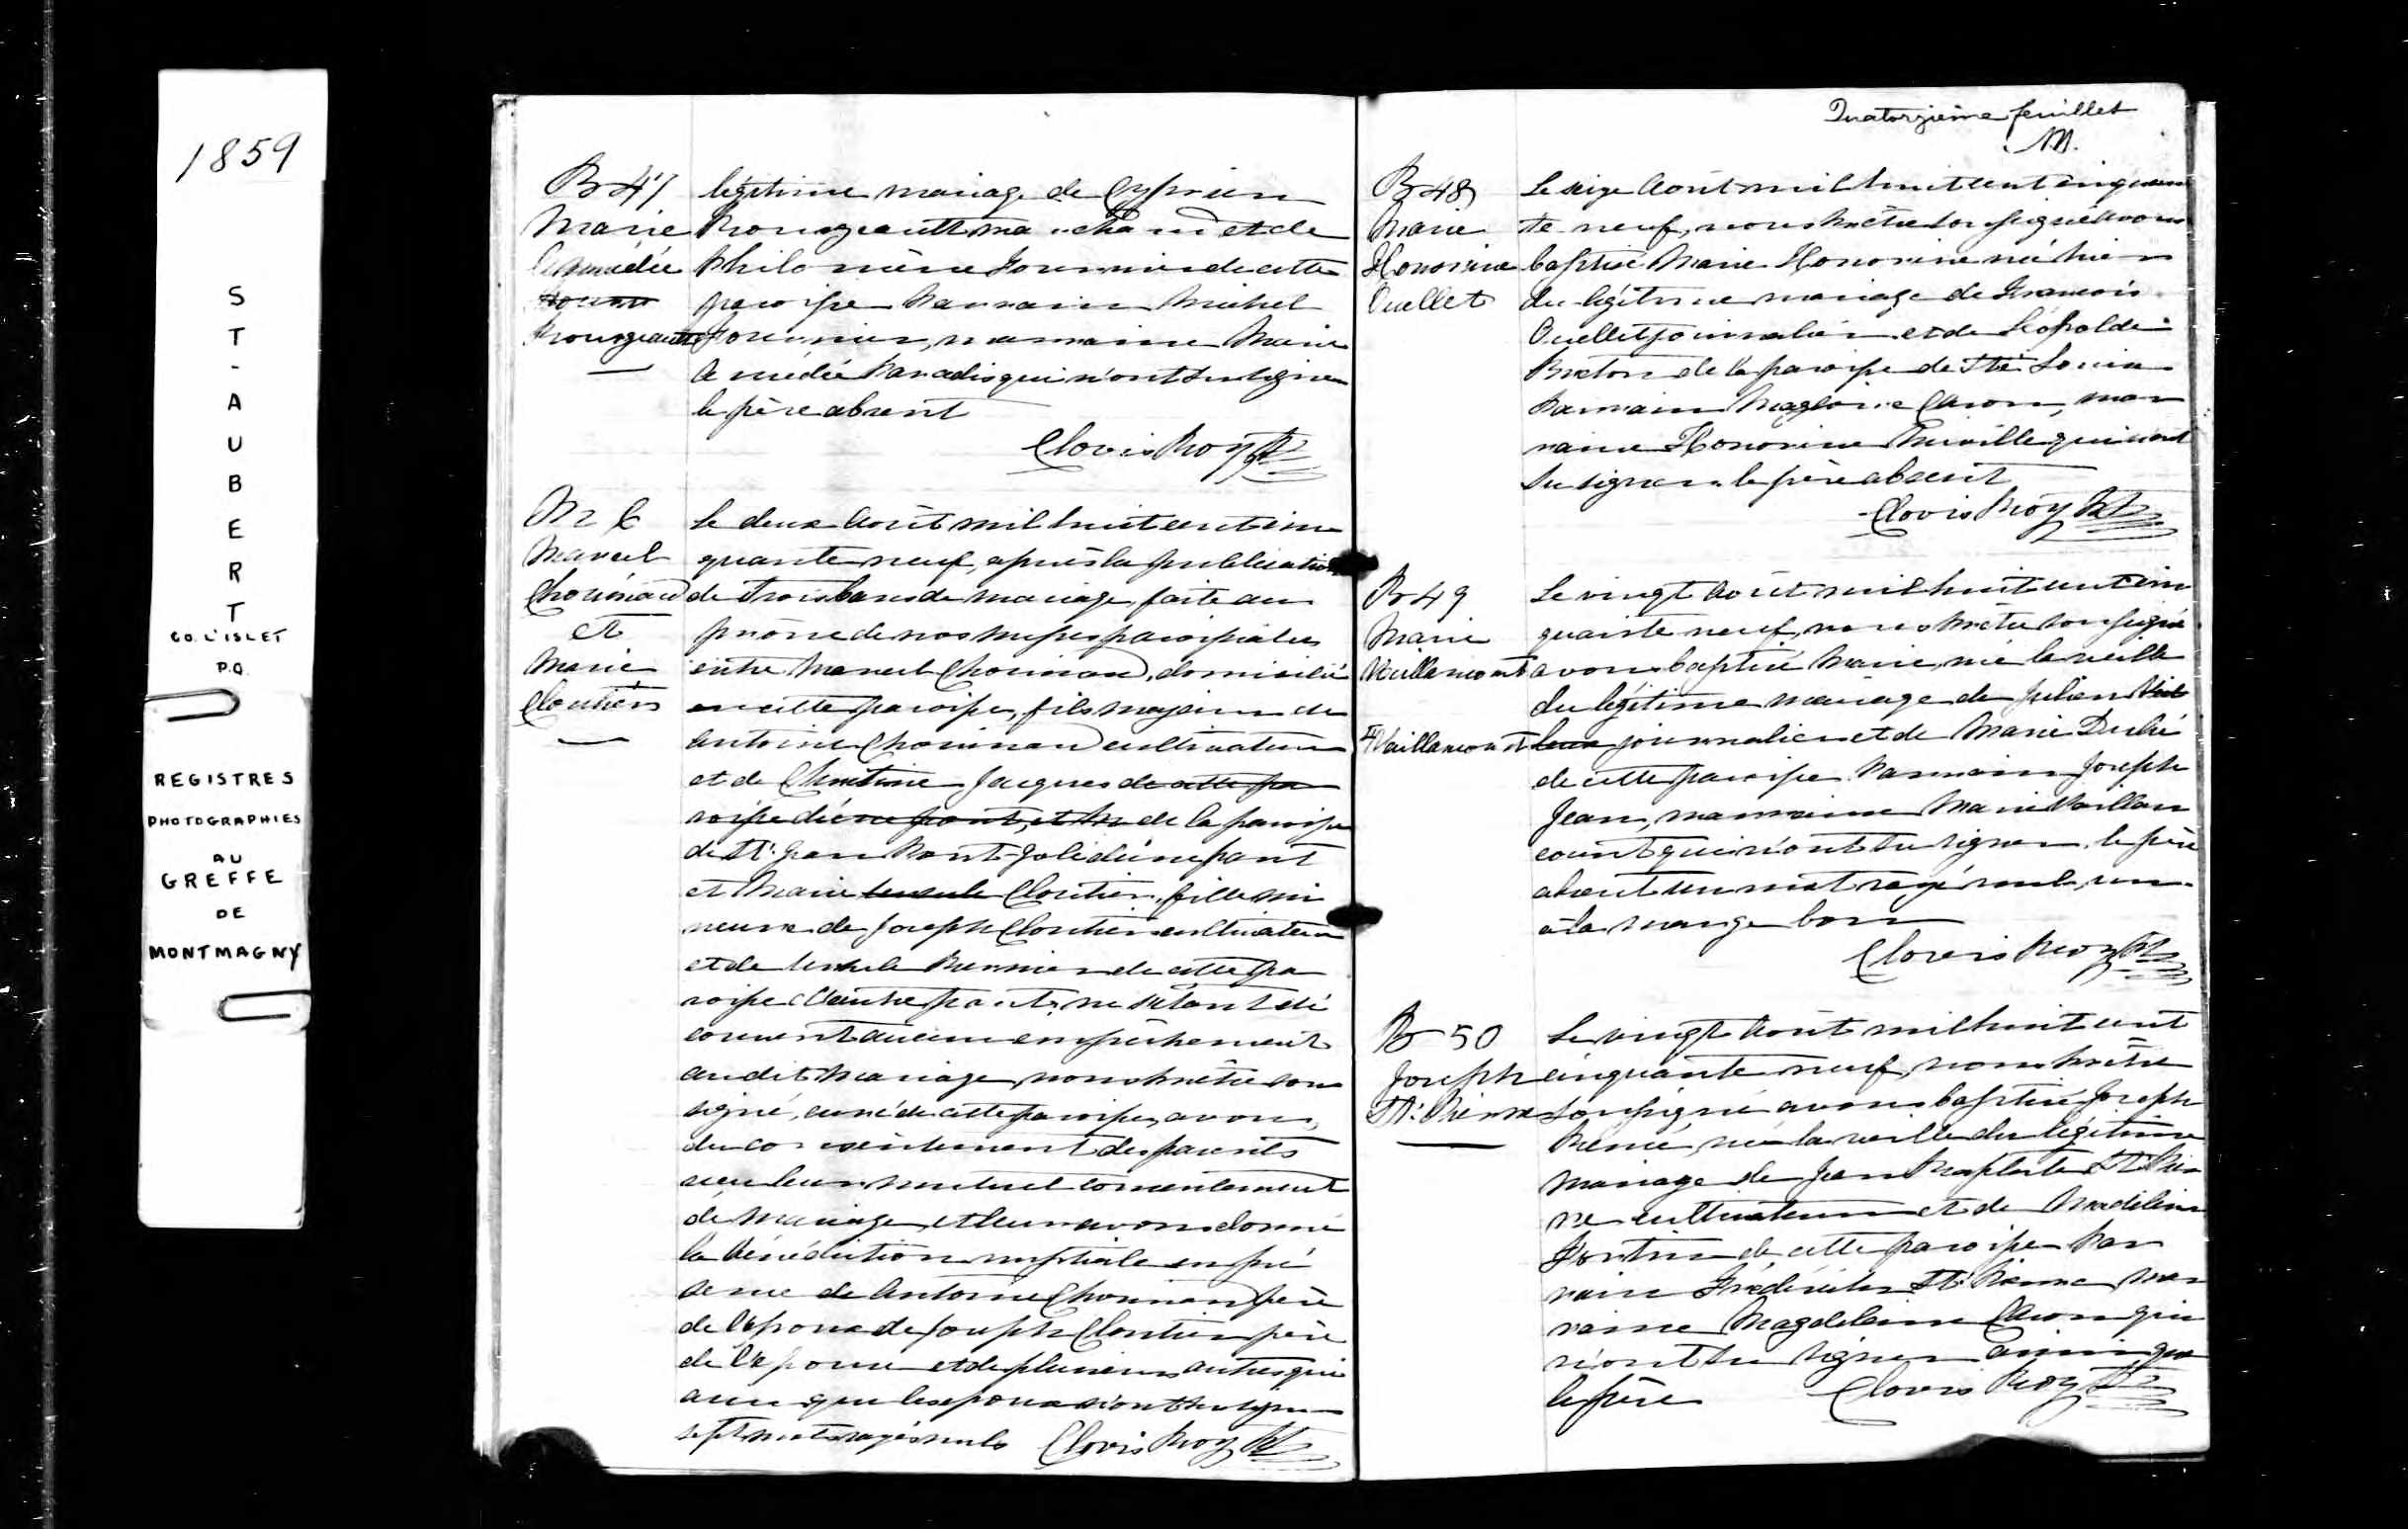 1859
ST-AUBERT
CO. L'ISLET
P.Q.
REGISTRES
PHOTOGRAPHIES
AU
GREFFE
DE
MONTMAGNY
B 47
Marie
Amédée
Bourgeault
légitime mariage de Cyprien
Bourgeault marchand et de
Philomène Fournier de cette
paroisse Parrain Michel
Fournier, marraine Marie
Amédée Paradis qui n'ont su signer
le père absent
Clovis Roy Ptr
M 6
Marcel
Chouinard
et
Marie
Cloutier
Le deux Août mil huit cent cin
quante neuf, après la publication
de trois bans de mariage, faite au
prône de nos messes paroissiales
entre Marcel Chouinard, domicilié
en cette paroisse, fils majeur de
Antoine Chouinard cultivateur
et de Christine Jacques de cette pa
roisse d'une part, et de la paroisse
de St. Jean Port-Joli d'une part
et Marie Ursule Cloutier, fille mi
neure de Joseph Cloutier cultivateur
et de Ursule Bernier de cette pa
roisse d'autre part; ne s'étant dé
couvert aucun empêchement
audit mariage, nous Prêtre sous
signé, curé de cette paroisse, avons,
du consentement des parents
reçu leur mutuel consentement
de mariage, et leur avons donné
la bénédiction nuptiale en pré
sence de Antoine Chouinard père
de l'époux de Joseph Cloutier père
de l'épouse et de plusieurs autres qui
ainsi que les époux n'ont su signer
sept mots rayés nuls Clovis Roy Ptr
Quatorzième feuillet
B 48
Marie
Honorine
Ouellet
Le seize Août mil huit cent cinquan
te neuf, nous Prêtre soussigné avons
baptisé Marie Honorine née hier
du légitime mariage de François
Ouellet journalier et de Léopolde
Breton de la paroisse de Ste Louise
Parrain Magloire Caron, mar
raine Honorine Miville qui n'ont
su signer. le père absent
Clovis Roy Ptr
B 49
Marie
Vaillancourt
Vaillancourt
Le vingt Août mil huit cent cin
quante neuf, nous Prêtre soussigné
avons baptisé Marie, née la veille
du légitime mariage de Julien
journalier et de Marie Dubé
de cette paroisse. Parrain Joseph
Jean, marraine Marie Vaillan
court qui n'ont su signer. le père
absent un mot rayé nul, un
à la marge bon
Clovis Roy Ptr
B 50
Joseph
St. Pierre
Le vingt Août mil huit cent
cinquante neuf, nous Prêtre
soussigné avons baptisé Joseph
né la veille du légitime
mariage de Jean Baptiste St. Pier
re cultivateur et de Madeleine
Fortin de cette paroisse Par
rain St. Pierre mar
raine Magdeleine Caron qui
n'ont su signer ainsi que
le père Clovis Roy Ptr